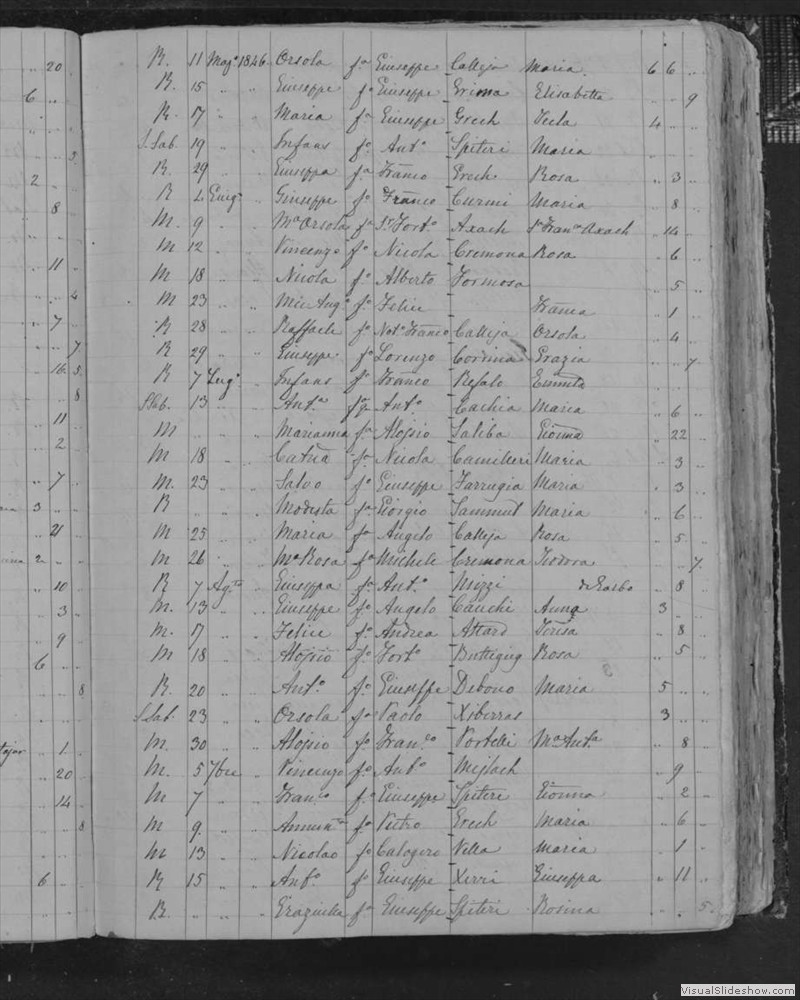 20 R. 11 Mag.o 1846 Orsola fa Giuseppe Calleja Maria 6 6 ..
6 R. 15 .. .. Giuseppe fo Giuseppe Erima Elisabetta .. .. 9
R. 17 .. .. Maria fa Giuseppe Grech Tecla 4 .. ..
S.Sab. 19 .. .. Infans fo Ant.o Spiteri Maria .. .. ..
2 R. 29 .. .. Giuseppa fa Franco Grech Rosa .. 3 ..
8 R 4 Giug.o .. Giuseppe fo Franco Curmi Maria .. 8 ..
M. 9 .. .. Ma Orsola fa Fort.o Axach Fran.ca Axach .. 14 ..
M 12 .. .. Vincenzo fo Nicola Cremona Rosa .. 6 ..
11 M 18 .. .. Nicola fo Alberto Formosa .. 5 ..
4 M 23 .. .. Mic Ang.o fo Felice Franca .. 1 ..
7 R 28 .. .. Raffaele fo Not.o Franco Calleja Orsola .. 4 ..
7 R 29 .. .. Giuseppe fo Lorenzo Cordina Grazia .. .. 7
16 5 R 7 Lug.o .. Infans fo Franco Refalo .. .. ..
8 S.Sab. 13 .. .. Ant.o fo Ant.o Cachia Maria .. 6 ..
11 M .. .. .. Marianna fa Alojsio Saliba Gionna .. 22 ..
2 M 18 .. .. Catna fa Nicola Camilleri Maria .. 3 ..
7 M. 23 .. .. Salvo fo Giuseppe Farrugia Maria .. 3 ..
3 R .. .. .. Modesta fa Giorgio Sammut Maria .. 6 ..
21 M 25 .. .. Maria fa Angelo Calleja Rosa .. 5 ..
2 M 26 .. .. Ma Rosa fa Michele Cremona Teodora .. .. 7
10 R 7 Ag.to .. Giuseppa fa Ant.o Mizzi .. 8 ..
3 M. 13 .. .. Giuseppe fo Angelo Cauchi Anna 3 .. ..
9 M. 17 .. .. Felice fo Andrea Attard Teresa .. 8 ..
6 M 18 .. .. Alojsio fo Fort.o Buttigieg Rosa .. 5 ..
8 R. 20 .. .. Ant.o fo Giuseppe Debono Maria 5 .. ..
S.Sab. 23 .. .. Orsola fa Paolo Xiberras 3 .. ..
1 M. 30 .. .. Alojsio fo Fran.co Portelli Ma Ant.a .. 8 ..
20 M. 5 7bre .. Vincenzo fo Ant.o Mejlach .. 9 ..
14 M 7 .. .. Fran.co fo Giuseppe Spiteri Gionna .. 2 ..
8 M 9. .. .. Annun.ta fa Pietro Grech Maria .. 6 ..
M 13 .. .. Nicolao fo Calogero Vella Maria .. 1 ..
6 R 15 .. .. Ant.o fo Giuseppe Xerri Giuseppa .. 11 ..
R. .. .. .. Graziella fa Giuseppe Spiteri Rosina .. .. 5.
VisualSlideshow.com